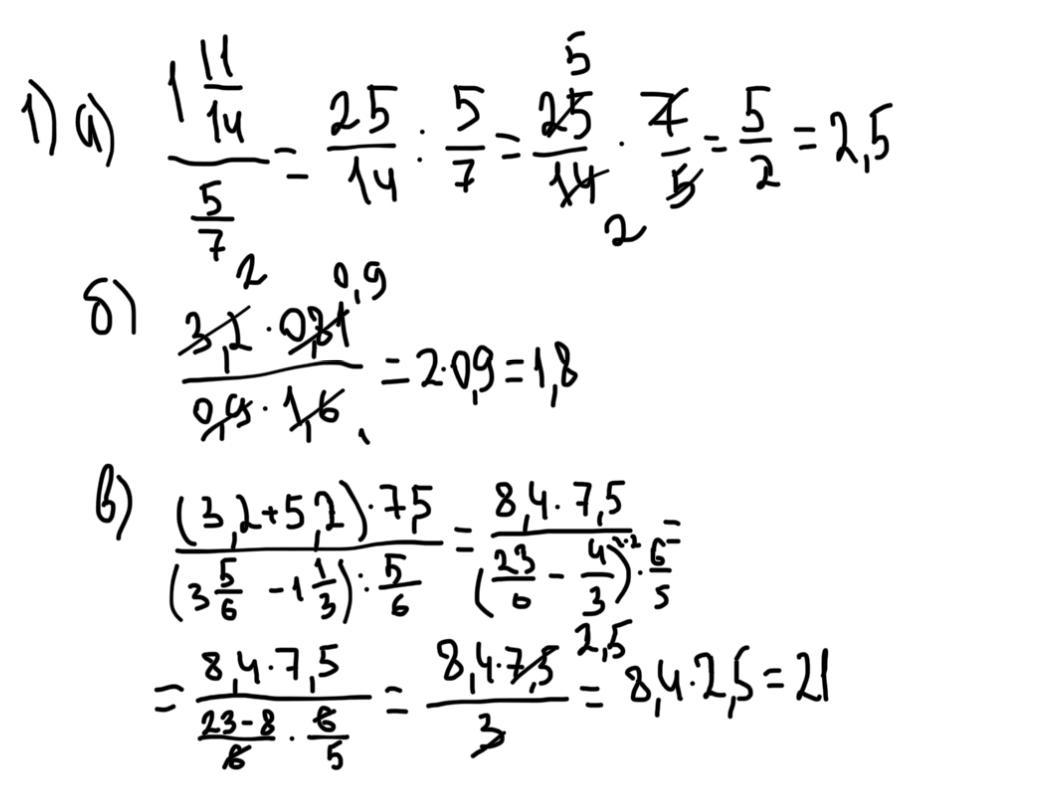 1) а) (1 11/14)/(5/7) = 25/14 : 5/7 = 25/14 · 7/5 = 5/2 = 2,5
б) (3,2 · 0,81)/(0,9 · 1,6) = 2·0,9 = 1,8
в) ((3,2+5,2)·7,5)/((3 5/6 - 1 1/3) : 5/6) = (8,4 · 7,5)/((23/6 - 4/3)·6/5) =
= (8,4 · 7,5)/((23-8)/6 · 6/5) = (8,4·7,5)/3 = 8,4·2,5 = 21